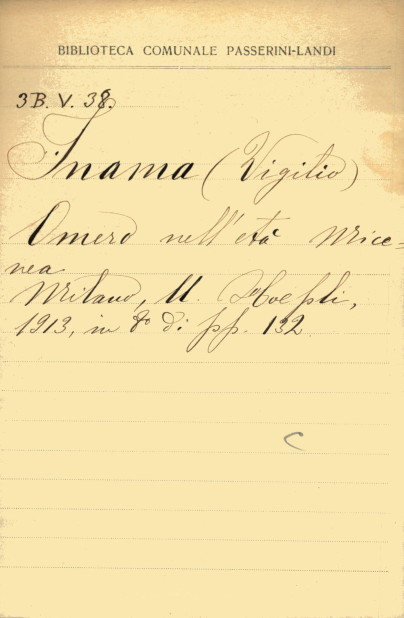 BIBLIOTECA COMUNALE PASSERINI-LANDI
3B. V. 38.
Inama (Vigilio)
Omero nell'età mice-
nea
Milano, U. Hoepli,
1913, in 8° di pp. 132.
C